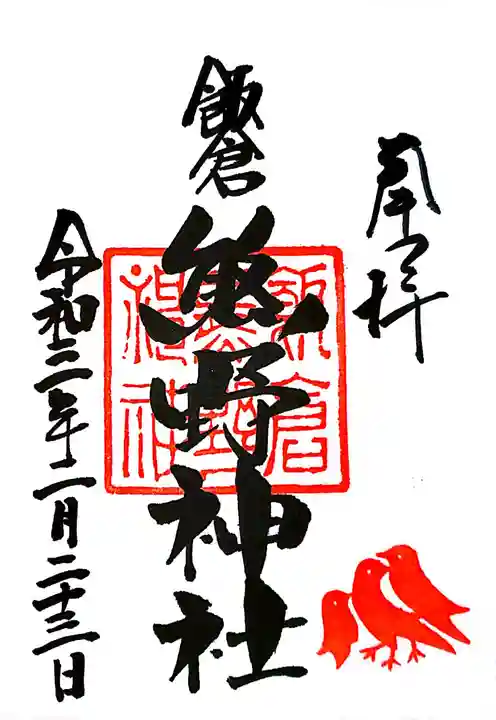 奉拝
飯倉
熊野神社
飯倉
熊野
神社
令和三年二月二十三日